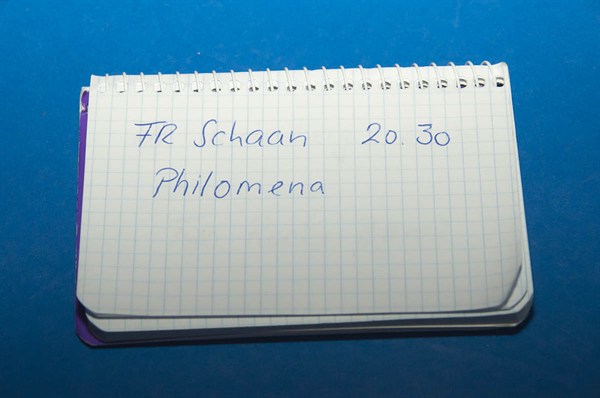 FR Schaan 20.30
Philomena